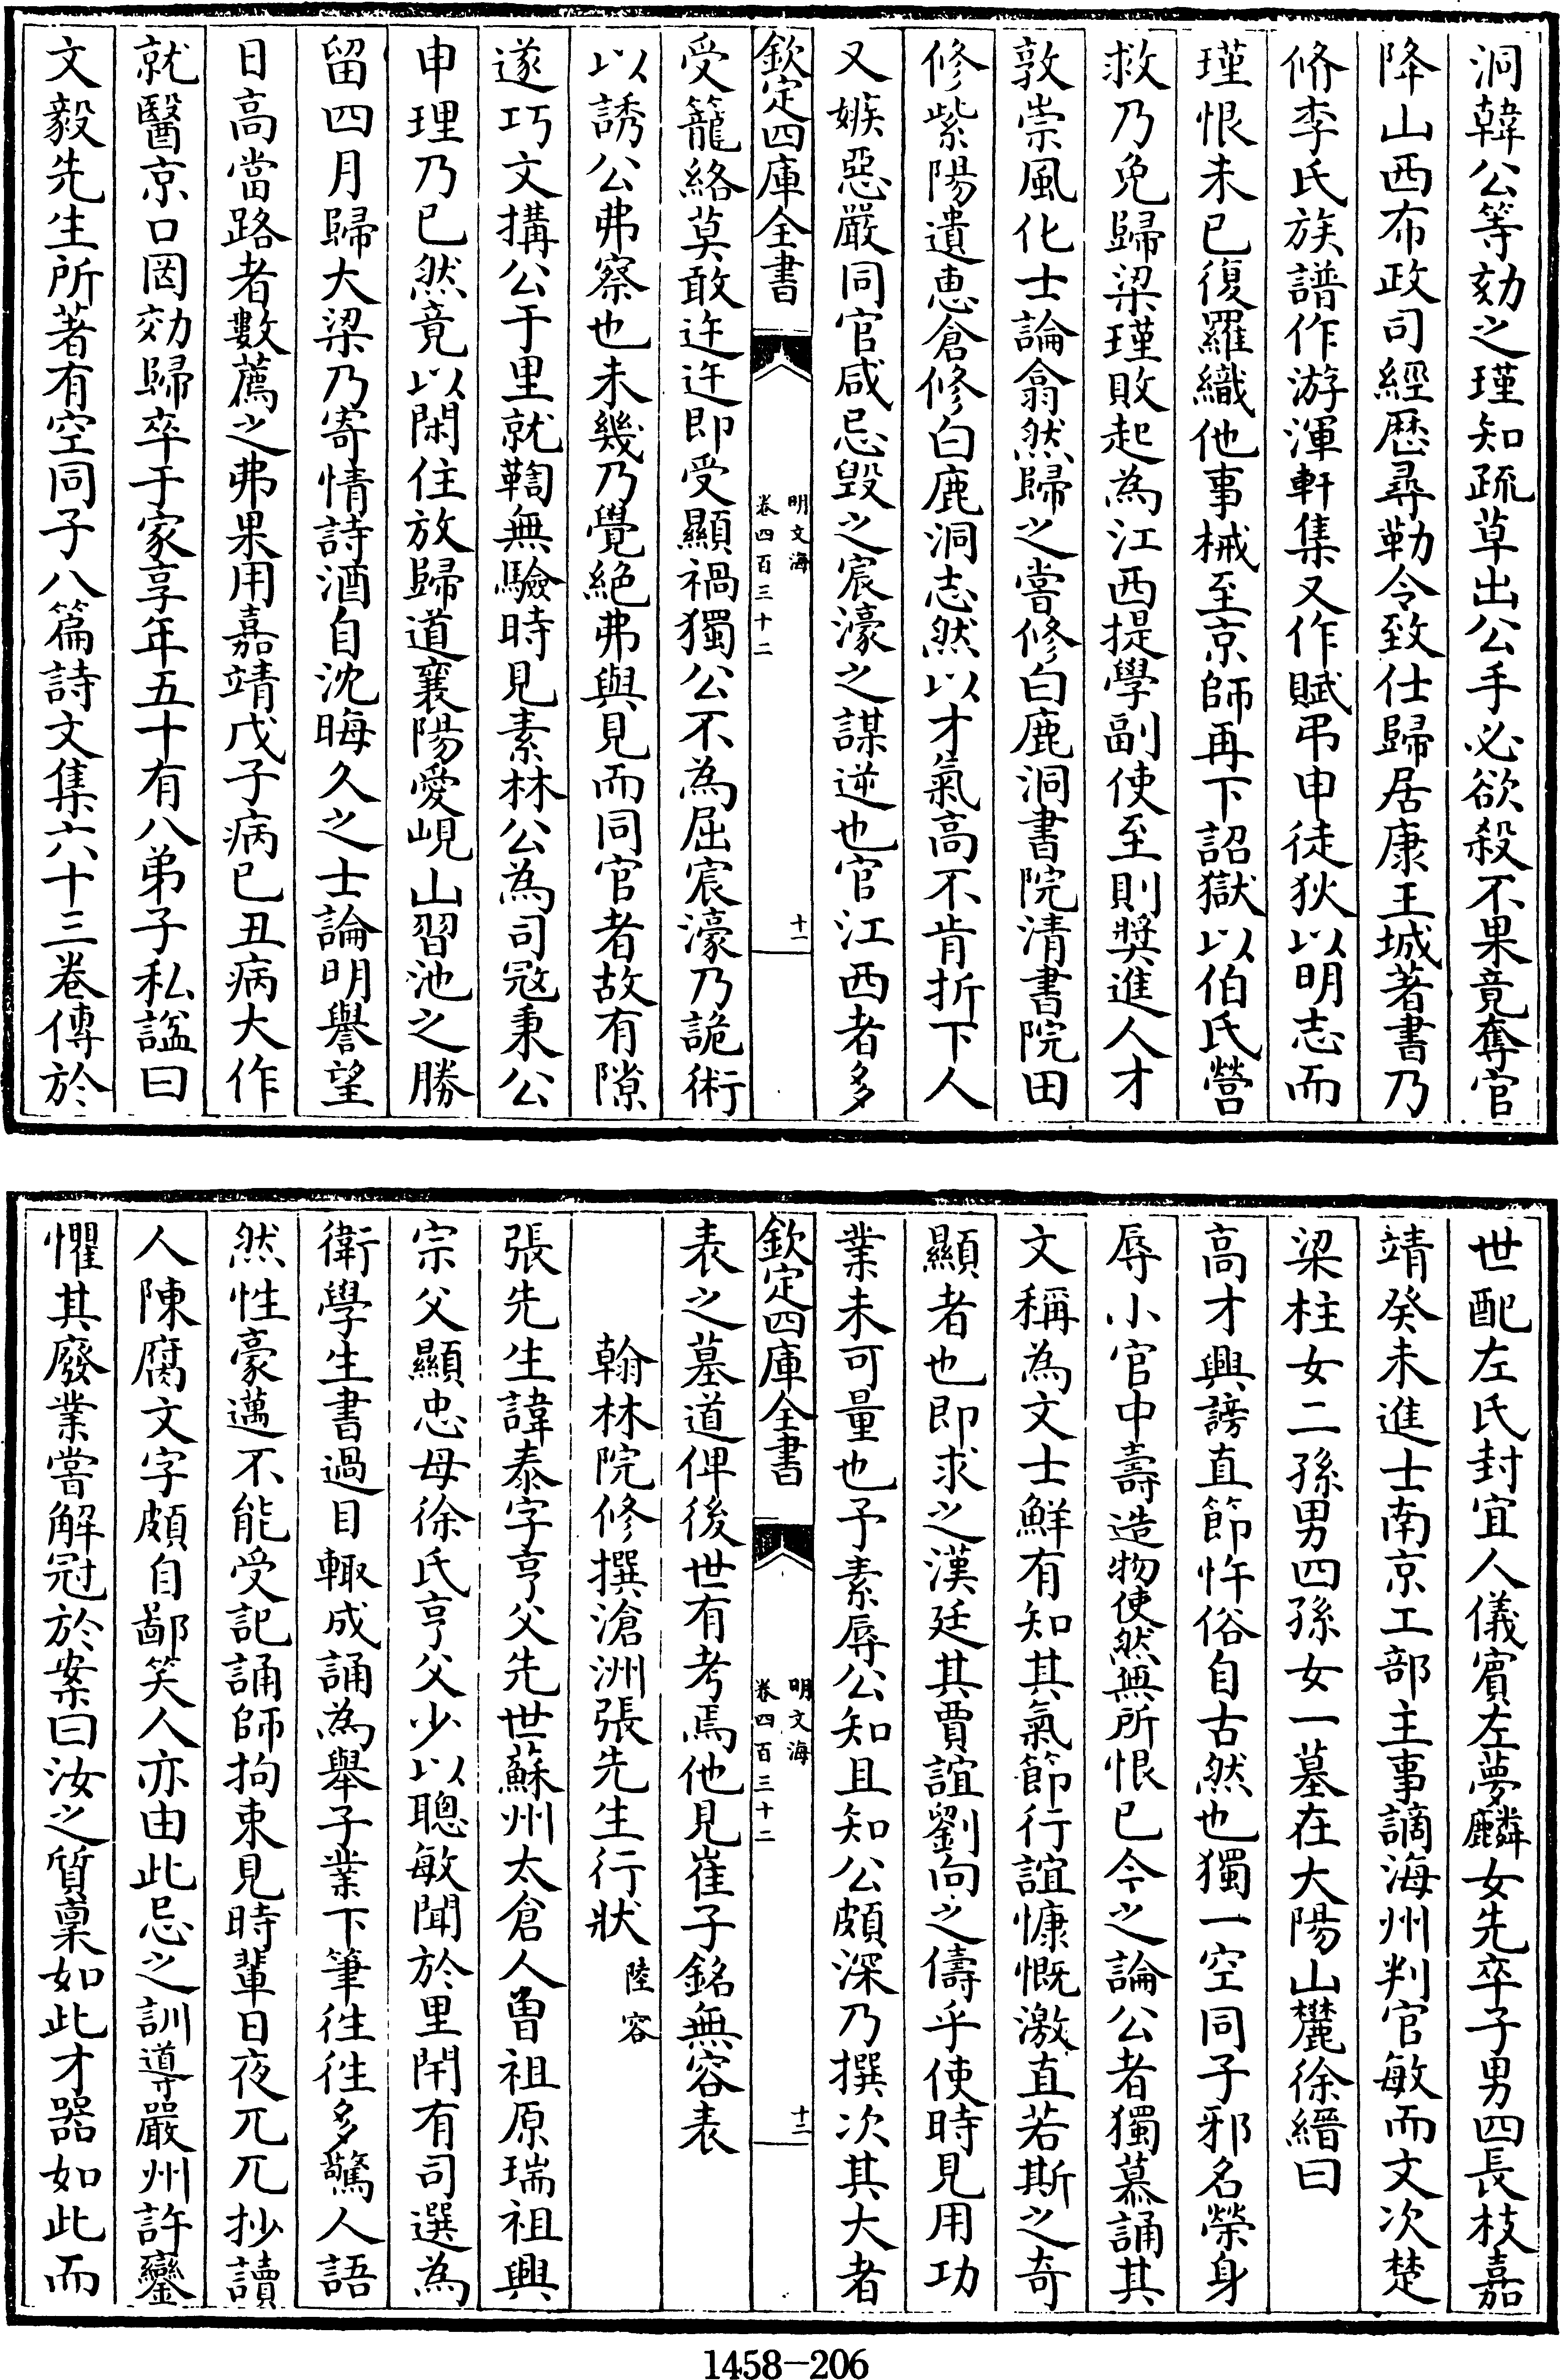 洞韓公等劾之瑾知疏草出公手必欲殺不果竟奪官
降山西布政司經歷尋勒令致仕歸居康王城著書乃
脩李氏族譜作游渾軒集又作賦弔申徒狄以明志而
瑾恨未已復羅織他事械至京師再下詔獄以伯氏營
救乃免歸梁瑾敗起為江西提學副使至則奬進人才
敦崇風化士論翕然歸之嘗修白鹿洞書院清書院田
修紫陽遺惠倉修白鹿洞志然以才氣高不肯折下人
又嫉惡嚴同官咸忌毀之宸濠之謀逆也官江西者多
欽定四庫全書
明文海
卷四百三十二
十一
受籠絡莫敢迕迕即受顯禍獨公不為屈宸濠乃詭術
以誘公弗察也未幾乃覺絕弗與見而同官者故有隙
遂巧文搆公于里就鞫無驗時見素林公為司宼秉公
申理乃已然竟以閑住放歸道襄陽愛峴山習池之勝
留四月歸大梁乃寄情詩酒自沈晦久之士論明譽望
日高當路者數薦之弗果用嘉靖戊子病已丑病大作
就醫京口罔効歸卒于家享年五十有八弟子私諡曰
文毅先生所著有空同子八篇詩文集六十三卷傳於
世配左氏封宜人儀賓左夢麟女先卒子男四長枝嘉
靖癸未進士南京工部主事謫海州判官敏而文次楚
梁柱女二孫男四孫女一墓在大陽山麓徐縉曰
高才興謗直節忤俗自古然也獨一空同子邪名榮身
辱小官中壽造物使然無所恨已今之論公者獨慕誦其
文稱為文士鮮有知其氣節行誼慷慨激直若斯之奇
顯者也即求之漢廷其賈誼劉向之儔乎使時見用功
業未可量也予素辱公知且知公頗深乃撰次其大者
欽定四庫全書
明文海
卷四百三十二
十二
表之墓道俾後世有考焉他見崔子銘無容表
翰林院修撰滄洲張先生行狀 陸容
張先生諱泰字亨父先世蘇州太倉人曾祖原瑞祖興
宗父顯忠母徐氏亨父少以聰敏聞於里閈有司選為
衛學生書過目輙成誦為舉子業下筆徃徃多驚人語
然性豪邁不能受記誦師拘束見時輩日夜兀兀抄讀
人陳腐文字頗自鄙笑人亦由此忌之訓導嚴州許鑾
懼其廢業嘗解冠於案曰汝之質稟如此才器如此而
1458-206